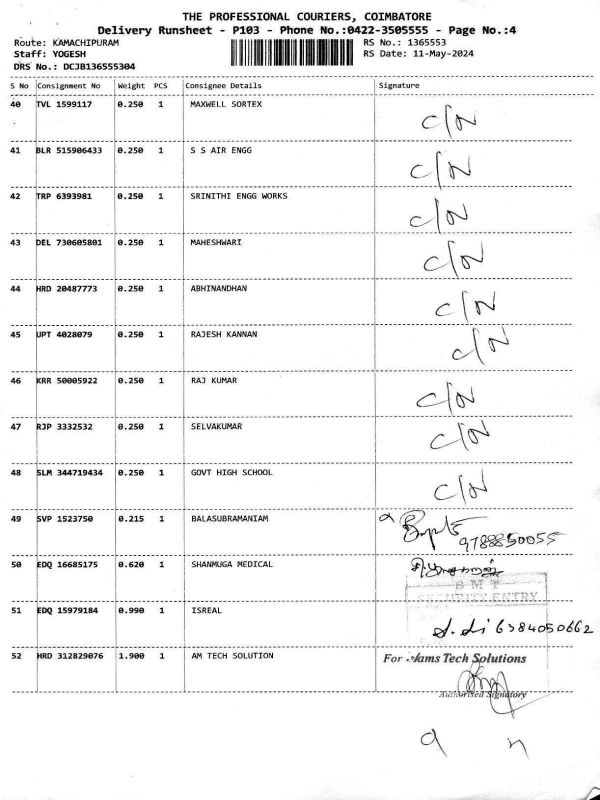 THE PROFESSIONAL COURIERS, COIMBATORE
Delivery Runsheet - P103 - Phone No.:0422-3505555 - Page No.:4
Route: KAMACHIPURAM RS No.: 1365553
Staff: YOGESH RS Date: 11-May-2024
DRS No.: DCJB136555304
S No Consignment No Weight PCS Consignee Details Signature
40 TVL 1599117 0.250 1 MAXWELL SORTEX C/N
41 BLR 515906433 0.250 1 S S AIR ENGG C/N
42 TRP 6393981 0.250 1 SRINITHI ENGG WORKS C/N
43 DEL 730605801 0.250 1 MAHESHWARI C/N
44 HRD 20487773 0.250 1 ABHINANDHAN C/N
45 UPT 4028079 0.250 1 RAJESH KANNAN C/N
46 KRR 50005922 0.250 1 RAJ KUMAR C/N
47 RJP 3332532 0.250 1 SELVAKUMAR C/N
48 SLM 344719434 0.250 1 GOVT HIGH SCHOOL C/N
49 SVP 1523750 0.215 1 BALASUBRAMANIAM
9788850055
50 EDQ 16685175 0.620 1 SHANMUGA MEDICAL
S M T
SECURITY ENTRY
51 EDQ 15979184 0.990 1 ISREAL
6384050662
52 HRD 312829076 1.900 1 AM TECH SOLUTION For Aams Tech Solutions
Authorised Signatory